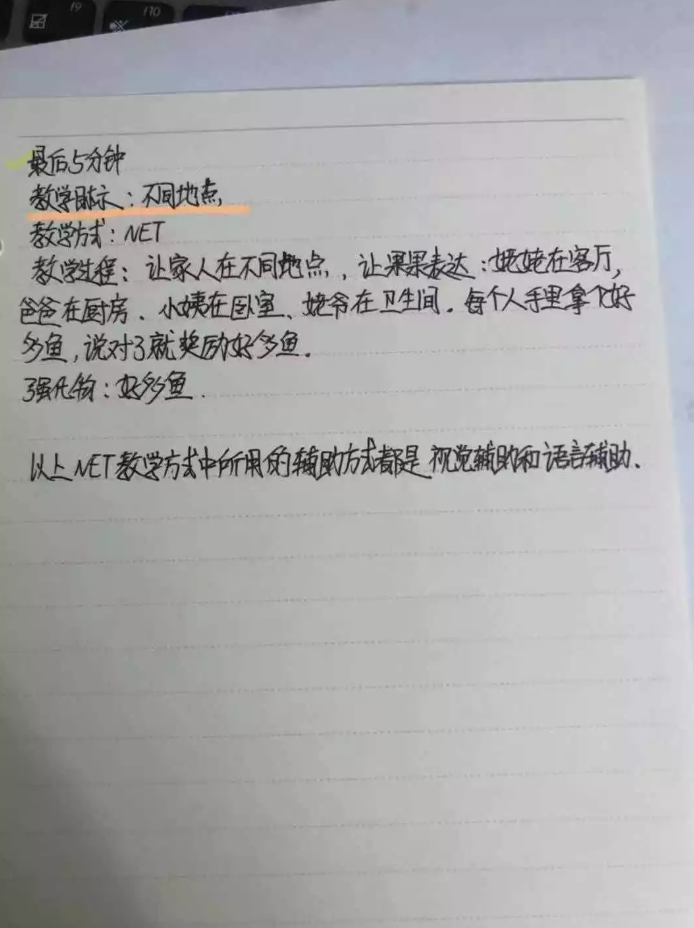 f9
f10
最后5分钟
教学目标：不同地点，
教学方式：NET
教学过程：让家人在不同地点，让果果表达：姥姥在客厅，
爸爸在厨房、小姨在卧室、姥爷在卫生间。每个人手里拿个好
多鱼，说对了就奖励好多鱼。
强化物：好多鱼．
以上NET教学方式中所用的辅助方式都是视觉辅助和语言辅助．